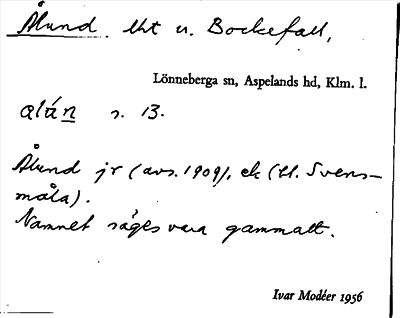 Ålund lht u. Bockefall,
Lönneberga sn, Aspelands hd, Klm. l.
alún s. 13.
Ålund jr (avs. 1909), ek (t. Svens-
måla).
Namnet säges vara gammalt.
Ivar Modéer 1956